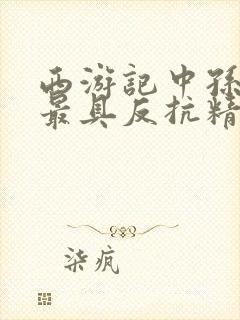 西游記中孫
最具反抗精
柒疯